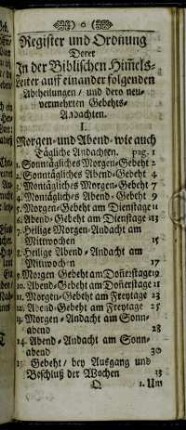 Register und Ordnung
Derer
In der Biblischen Him̃els-
Leiter auff einander folgenden
Abtheilungen / und dero neu-
vermehrten Gebehts-
Andachten.
I.
Morgen- und Abend- wie auch
Tägliche Andachten. pag. 1
1. Sonntägliches Morgen-Gebeht 2
2. Sonntägliches Abend-Gebeht 4
3. Montägliches Morgen-Gebeht 7
4. Montägliches Abend-Gebeht 9
5. Morgen-Gebeht am Dienstage 11
6. Abend-Gebeht am Dienstage 13
7. Heilige Morgen-Andacht am
Mittwochen 15
8. Heilige Abend-Andacht am
Mittwochen 17
9. Morgen Gebeht am Doñerstage 19
10. Abend-Gebeht am Doñerstage
11. Morgen-Gebeht am Freytage 23
12. Abend-Gebeht am Freytage 25
13. Morgen-Andacht am Sonn-
abend 28
14. Abend-Andacht am Sonn-
abend 30
15. Gebeht / bey Ausgang und
Beschluß der Wochen
Q 1. Um